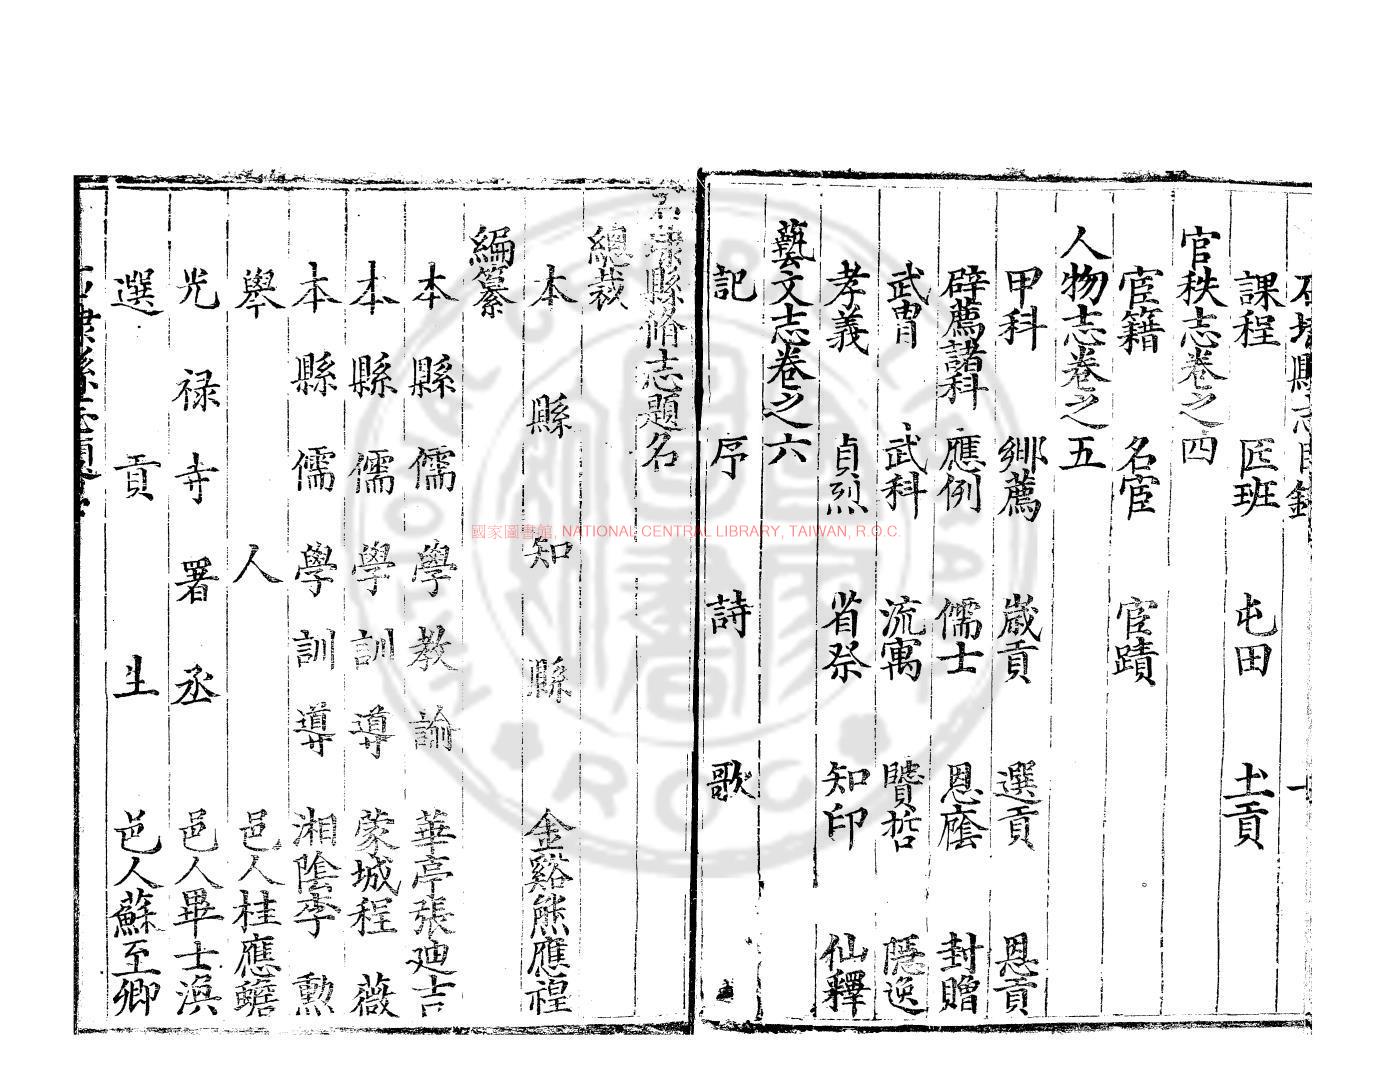 課程 匠班 屯田 土貢
官秩志卷之四
宦籍 名宦 宦蹟
人物志卷之五
甲科 鄉薦 嵗貢 選貢 恩貢
辟薦諸科 應例 儒士 恩廕 封贈
武胄 武科 流寓 賢哲 隱逸
孝義 貞烈 省祭 知印 仙釋
藝文志卷之六
記 序 詩 歌
埭縣脩志題名
總裁
本縣知縣 金谿熊應禋
編纂
本縣儒學教諭 華亭張廸吉
本縣儒學訓導 蒙城程薇
本縣儒學訓導 湘陰李勲
舉人 邑人桂應蟾
光祿寺署丞 邑人畢士淏
選貢生 邑人蘇至卿
國家圖書館, NATIONAL CENTRAL LIBRARY, TAIWAN, R.O.C.